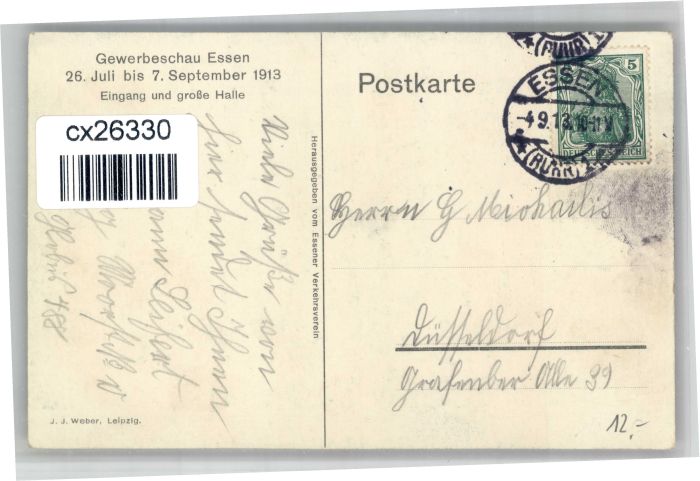 Gewerbeschau Essen
26. Juli bis 7. September 1913
Eingang und große Halle
cx26330
Viele Grüße von
hier sendet Ihnen
Herausgegeben vom Essener Verkehrsverein
J. J. Weber, Leipzig.
Postkarte
(RUHR)
ESSEN
-4.9.13.10-11V
(RUHR)
5
DEUTSCHES REICH
Herrn G Michaelis
Düsseldorf
Grafenber Alle 39
12.-